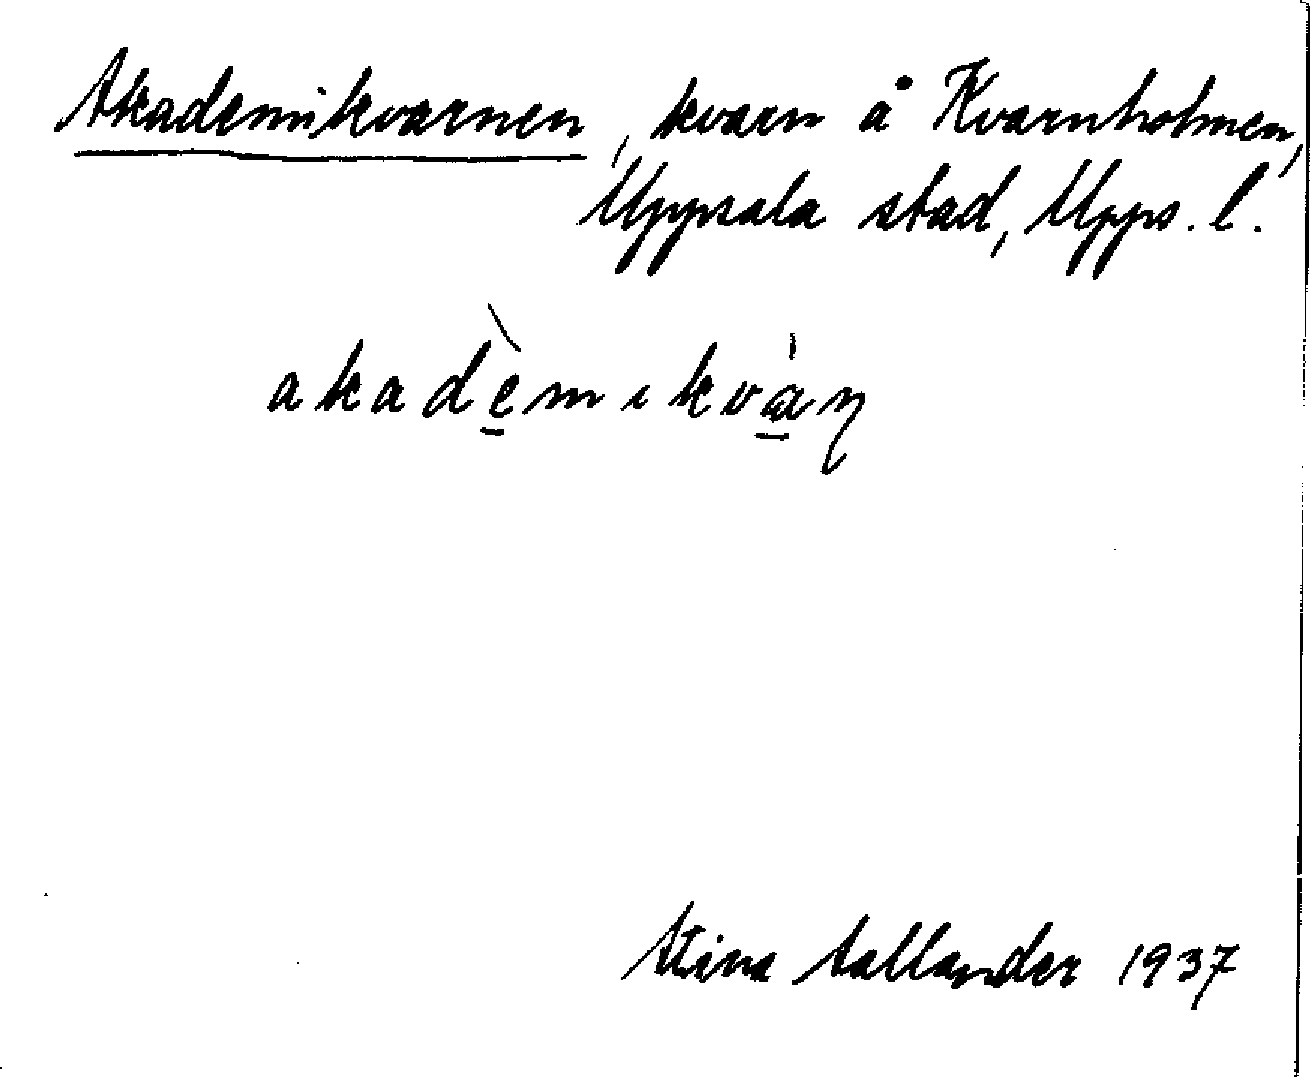 Akademikvarnen, kvarn å Kvarnholmen,
Uppsala stad, Upps. l.
akadèmikván
Stina Sallander 1937